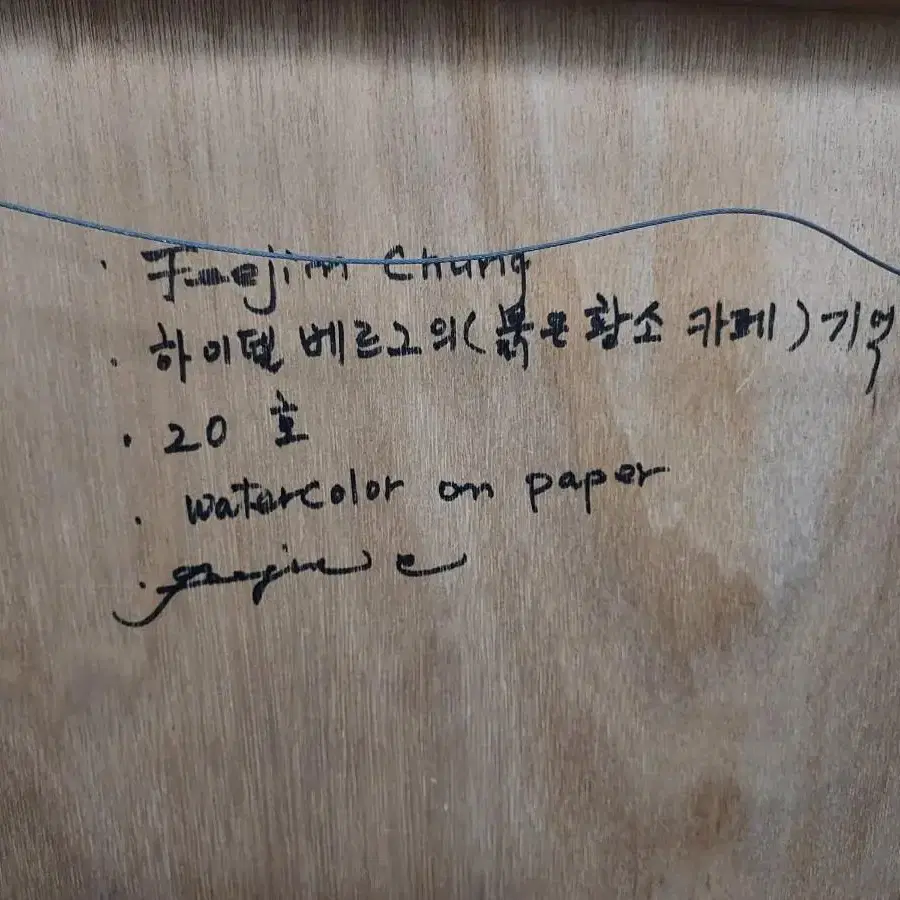 Chung
하이델베르그의(붉은황소 카페)기억
20 호
watercolor on paper